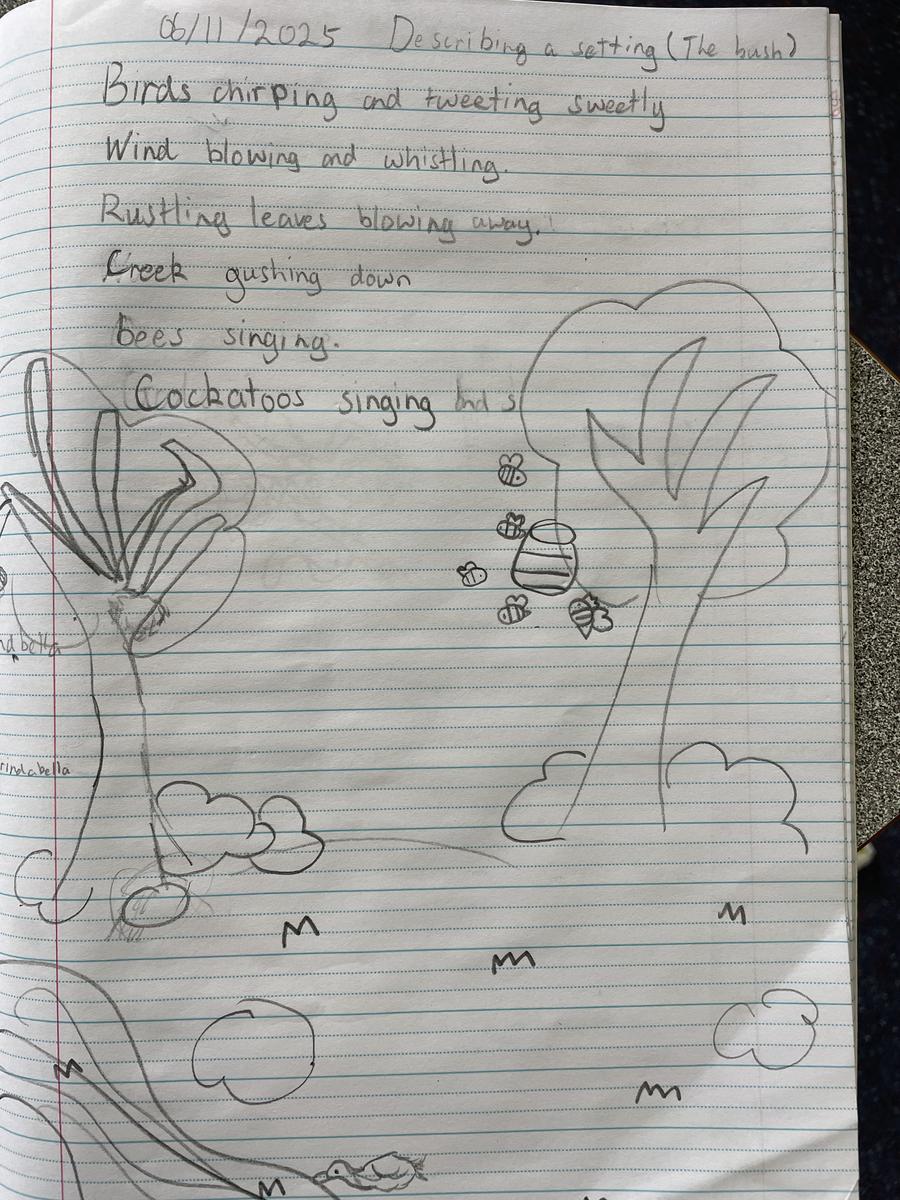 06/11/2025 Describing a setting (The bush)
Birds chirping and tweeting sweetly
Wind blowing and whistling.
Rustling leaves blowing away.
Creek gushing down
bees singing.
Cockatoos singing and s